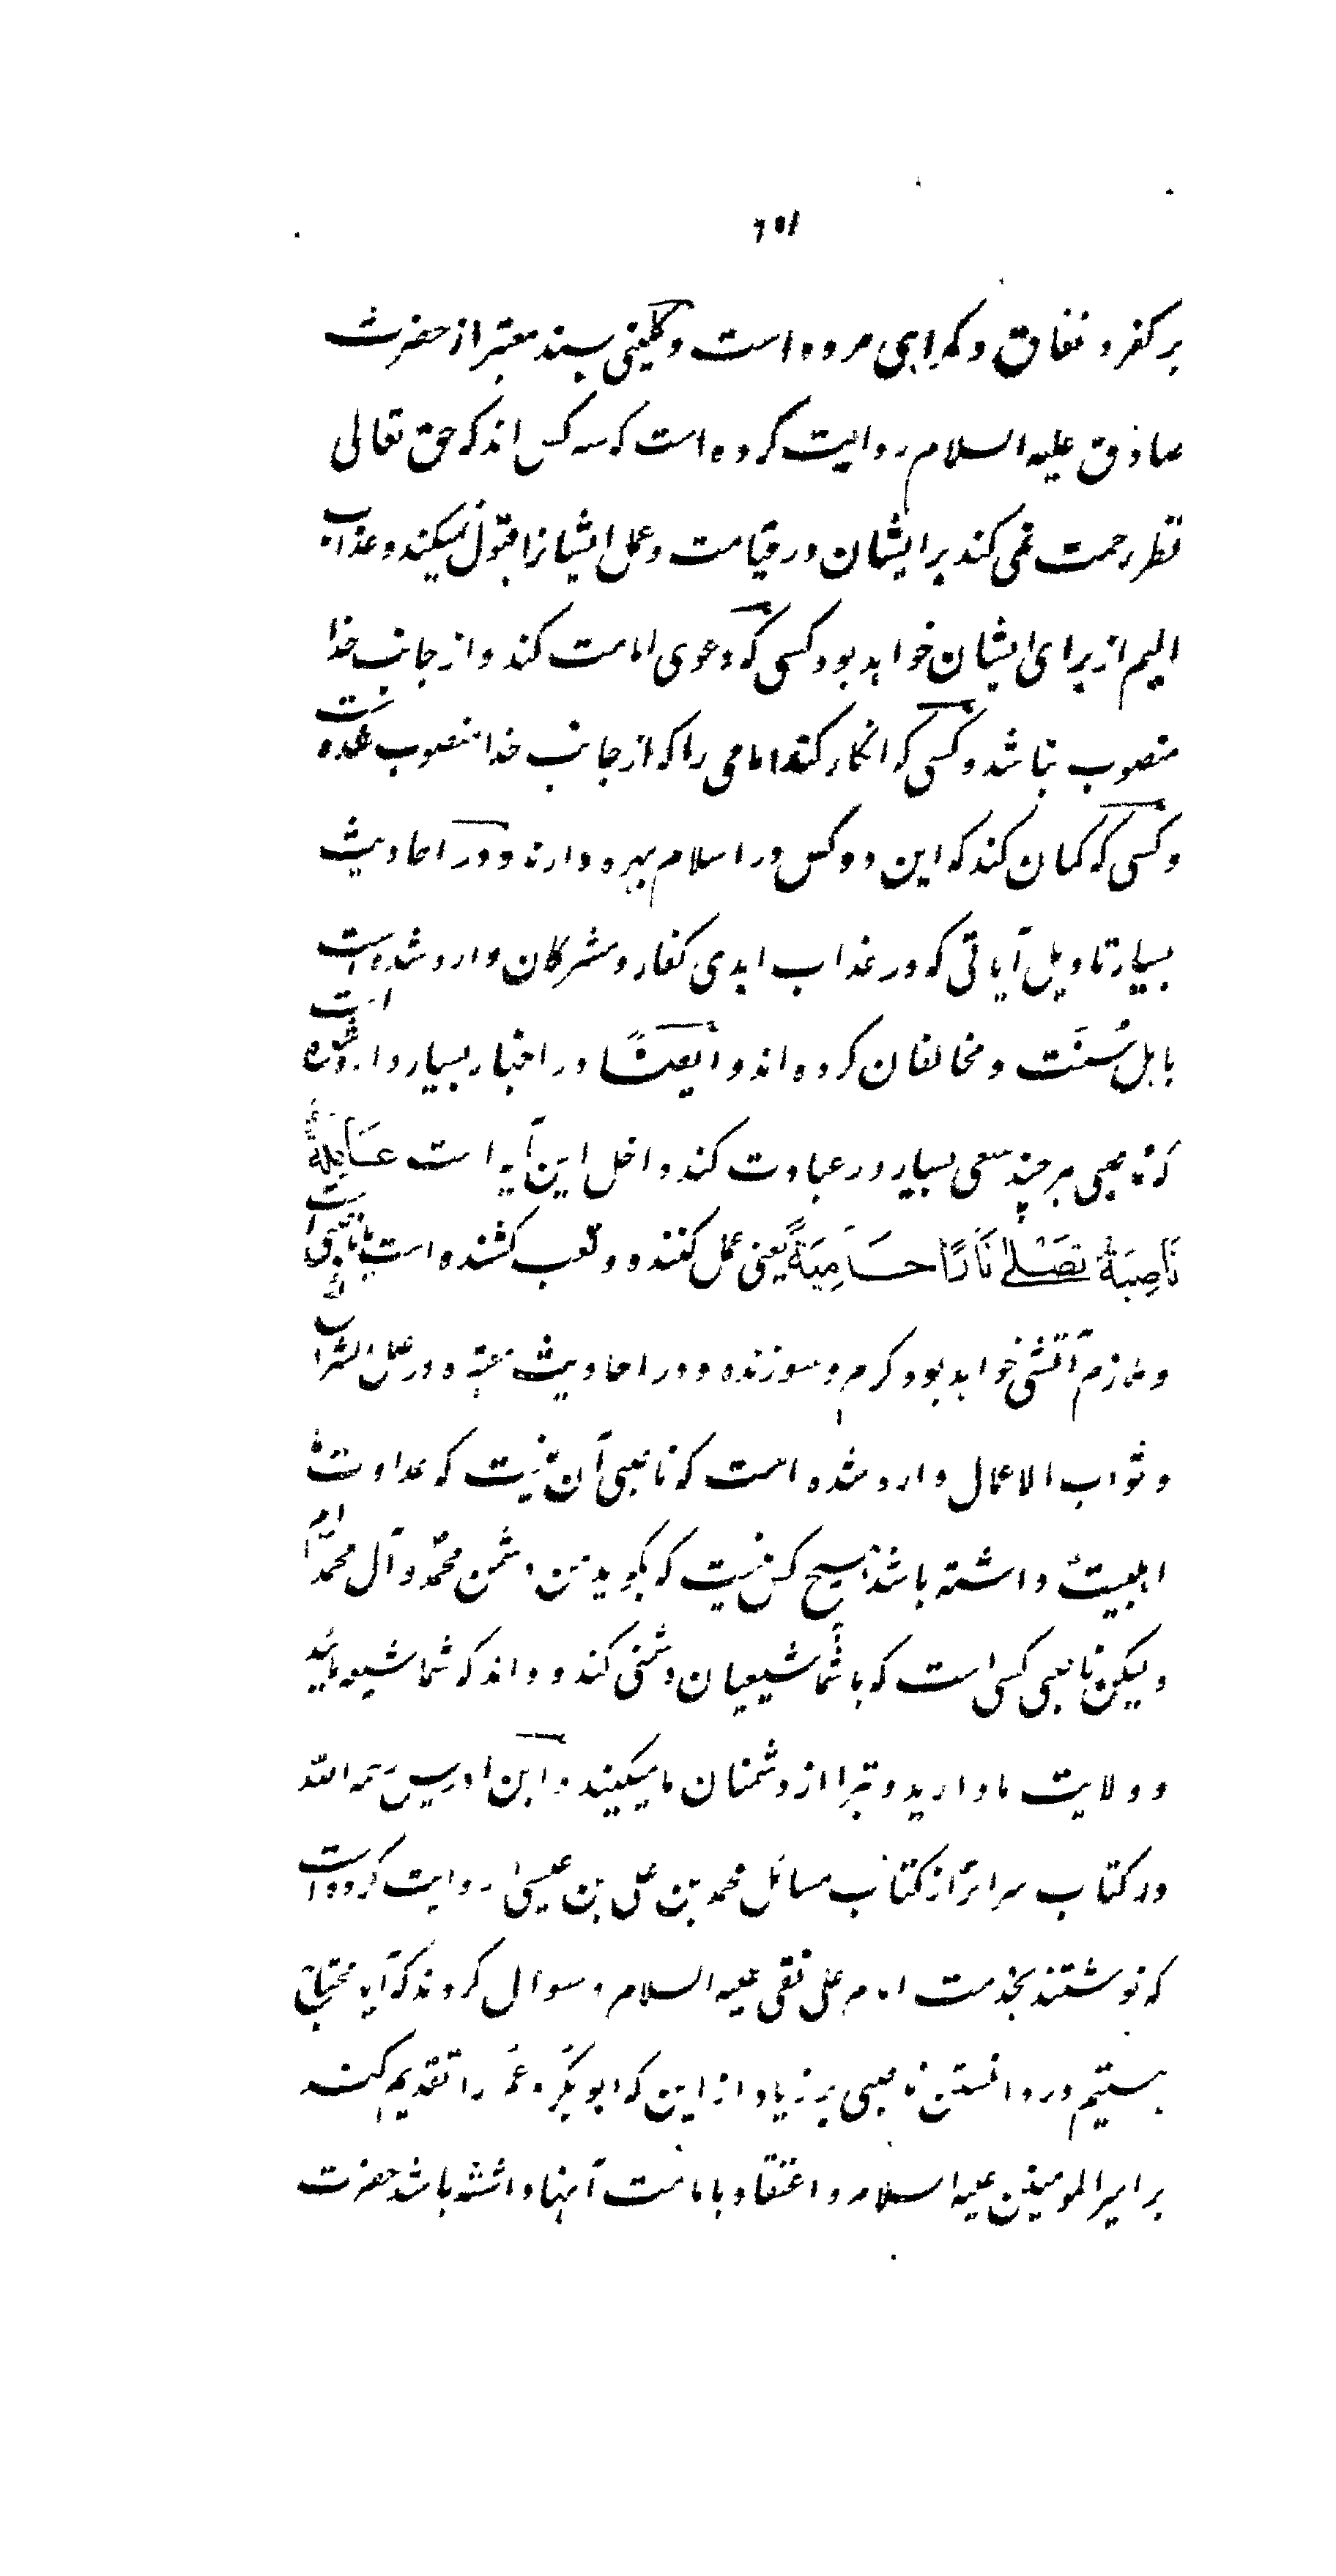 ۶۵۱
بر کفر و نفاق و گمراهی مرده است و کلینی بسند معتبر از حضرت
صادق علیه السلام روایت کرده است که سه کس اند که حق تعالی
نظر رحمت نمی کند بر ایشان در قیامت و عمل ایشانرا قبول نمیکند و عذاب
الیم از برای ایشان خواهد بود کسی که دعوی امامت کند و از جانب خدا
منصوب نباشد و کسی که انکار کند امامی را که از جانب خدا منصوب شده است
و کسی که گمان کند که این دو کس در اسلام بهره دارند و در احادیث
بسیار تاویل آیاتی که در عذاب ابدی کفار و مشرکان وارد شده است
باهل سُنَت و مخالفان کرده اند و ایضًا در اخبار بسیار وارد شده است
که ناصبی هر چند سعی بسیار در عبادت کند داخل این آیه است عَامِلَةٌ
نَاصِبَةٌ تَصْلٰی نَارًا حَامِیَةً یعنی عمل کننده و تعب کشنده است ناصبی است
و ملازم آتشی خواهد بود گرم و سوزنده و در احادیث معتبره در علل الشرایع
و ثواب الاعمال وارد شده است که ناصبی آن نیست که عداوت ما
اهلبیت داشته باشد هیچ کس نیست که بگوید من دشمن محمد و آل محمدم
و لیکن ناصبی کسی است که با شما شیعیان دشمنی کند و داند که شما شیعه مائید
و ولایت ما دارید و تبرا از دشمنان ما میکنید و ابن ادریس رحمه الله
در کتاب سرائر از کتاب مسائل محمد بن علی بن عیسی روایت کرده است
که نوشتند بخدمت امام علی نقی علیه السلام و سوال کردند که آیا محتاج
هستیم در دانستن ناصبی بر زیاد از این که ابوبکر و عمر را تقدیم کند
بر امیر المومنین علیه السلام و اعتقاد بامامت آنها داشته باشد حضرت